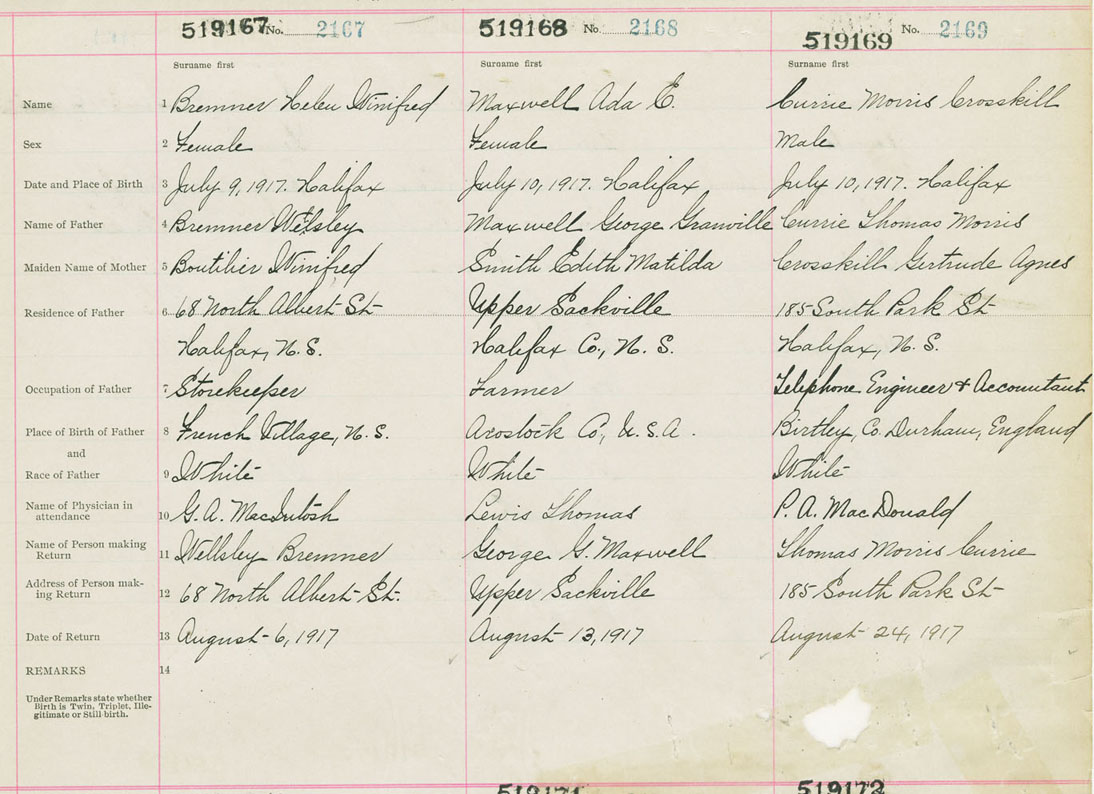 519167 No. 2167 519168 No. 2168 519169 No. 2169
Surname first Surname first Surname first
Name 1 Bremner Helen Winifred Maxwell Ada E. Currie Morris Crosskill
Sex 2 Female Female Male
Date and Place of Birth 3 July 9, 1917. Halifax July 10, 1917. Halifax July 10, 1917. Halifax
Name of Father 4 Bremner Welsley Maxwell George Granville Currie Thomas Morris
Maiden Name of Mother 5 Boutilier Winifred Smith Edith Matilda Crosskill Gertrude Agnes
Residence of Father 6 68 North Albert St Upper Sackville 185 South Park St
Halifax, N.S. Halifax Co., N.S. Halifax, N.S.
Occupation of Father 7 Storekeeper Farmer Telephone Engineer & Accountant
Place of Birth of Father 8 French Village, N.S. Arostock Co, U.S.A. Birtley, Co. Durham, England
and
Race of Father 9 White White White
Name of Physician in
attendance 10 G. A. MacIntosh Lewis Thomas P. A. MacDonald
Name of Person making
Return 11 Wellsley Bremner George G. Maxwell Thomas Morris Currie
Address of Person mak-
ing Return 12 68 North Albert St. Upper Sackville 185 South Park St
Date of Return 13 August 6, 1917 August 13, 1917 August 24, 1917
REMARKS 14
Under Remarks state whether
Birth is Twin, Triplet, Ille-
gitimate or Still-birth.
519171 519172